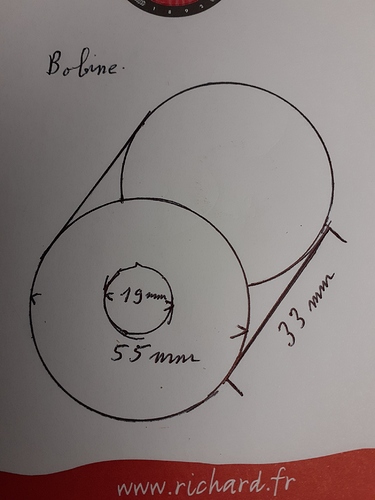 Bobine.
19mm
55 mm
33 mm
www.richard.fr